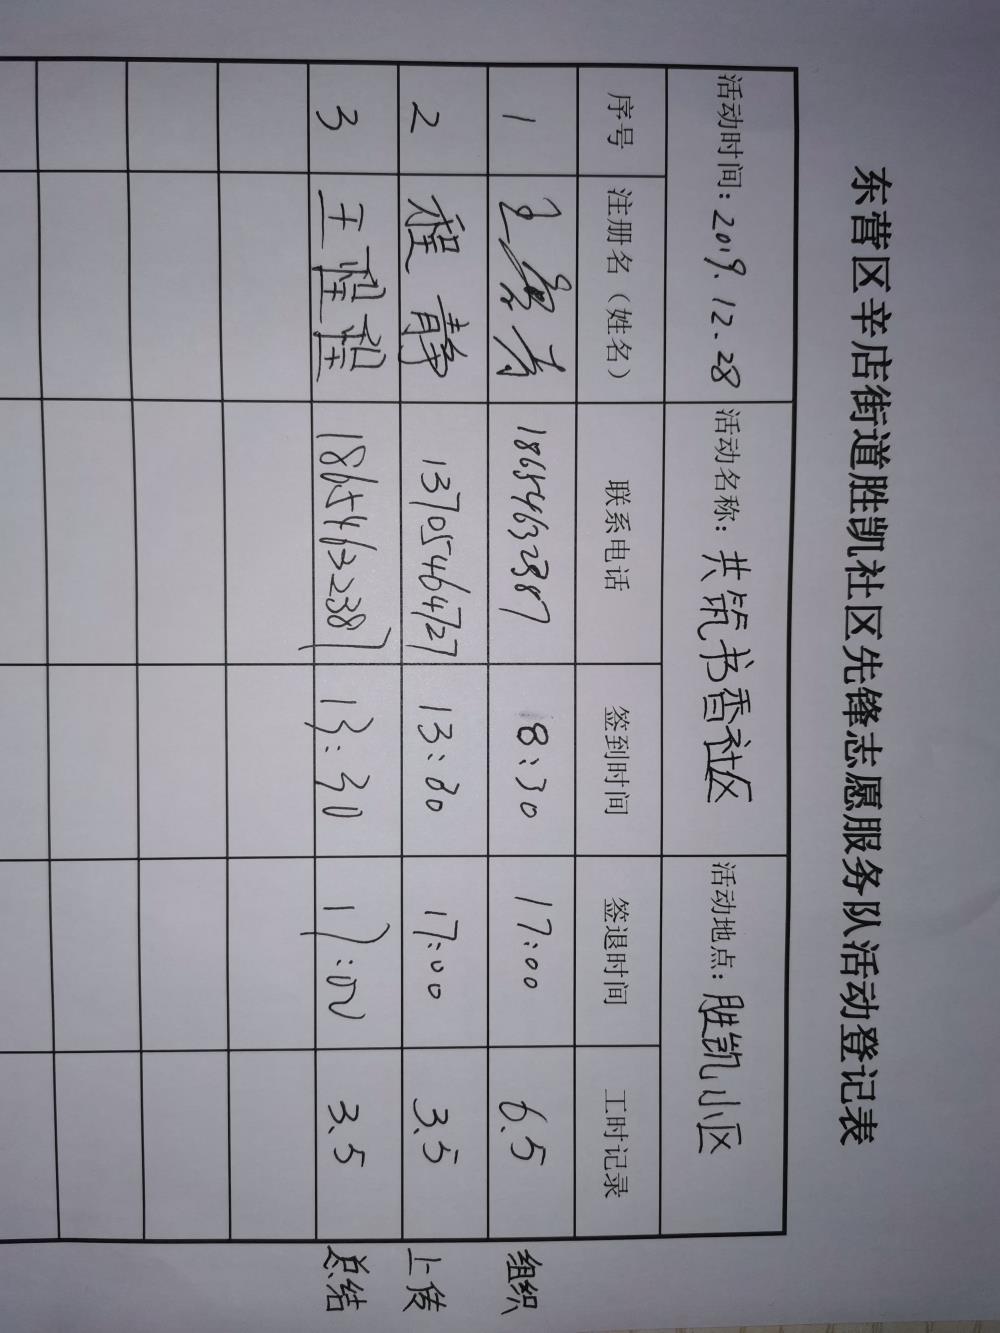 东营区辛店街道胜凯社区先锋志愿服务队活动登记表
活动时间：2019.12.28 活动名称：共筑书香社区 活动地点：胜凯小区
序号 注册名（姓名） 联系电话 签到时间 签退时间 工时记录
1 18654632387 8:30 17:00 6.5 组织
2 程静 13705464727 13:30 17:00 3.5 上传
3 王程程 13:30 17:00 3.5 总结